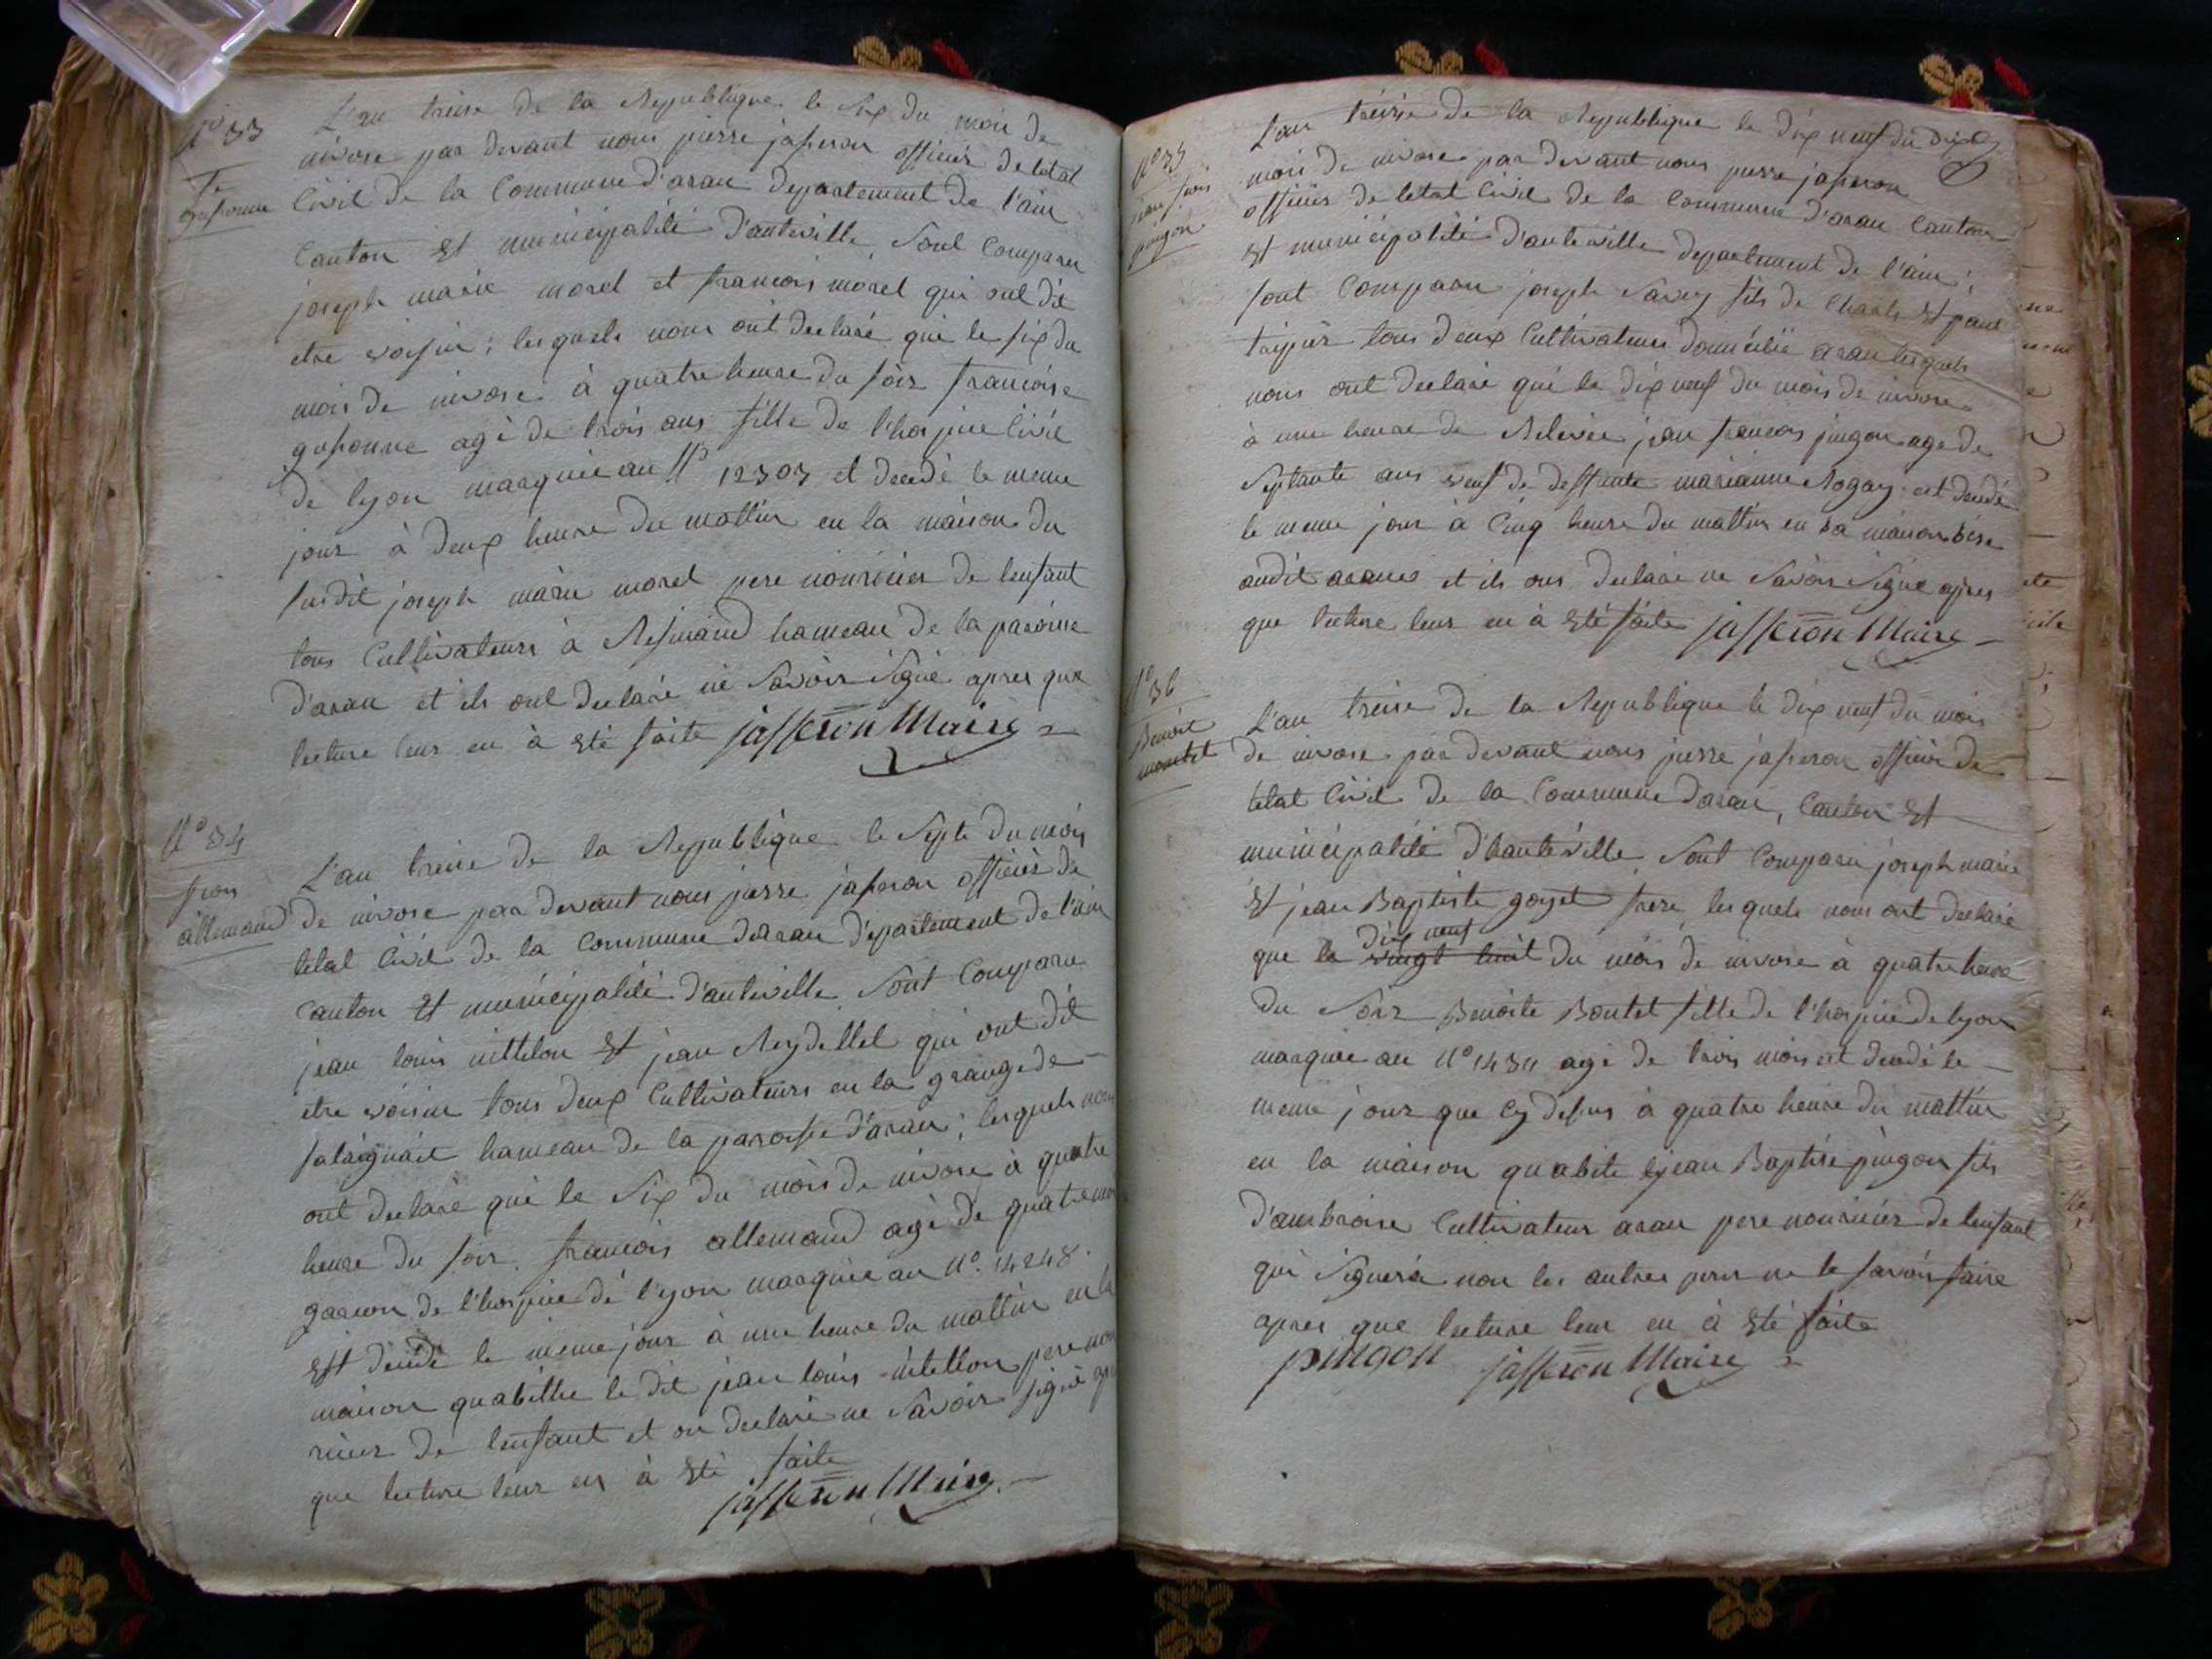 N° 33
L'an treise de la Republique le six du mois de
nivose par devant nous pierre jasseron officier de letat
Civil de la Commune d'aran departement de l'ain
Canton Et municipalité d'auteville Sont Comparu
joseph marie morel et francois morel qui ont dit
etre voisin ; lesquels nous ont declaré que le six du
mois de nivose à quatre heure du soir francoise
agé de trois ans fille de l'hospice Civil
de lyon marquée au N° 12303 et decedé le meme
jour à deux heure du mattin en la maison du
susdit joseph marie morel pere nouricier de lenfant
tous Cultivateurs à Resinand hameau de la paroisse
d'aran et ils ont declaré ne Savoir Signé apres que
lecture leur en à Eté faite jasseron Maire
N° 34
fron
allemand
L'an treise de la Republique le Septe du mois
de nivose par devant nous pierre jasseron officier de
letat Civil de la Commune daran departement de l'ain
canton Et municipalité d'auteville Sont Comparu
jean louis Et jean Reydellet qui ont dit
etre voisin tous deux Cultivateurs en la grange de
hameau de la paroisse d'aran ; lesquels nous
ont declaré que le Six du mois de nivose à quatre
heure du soir francois allemand agé de quatre
garcon de l'hospice de l'yon marquée au N°. 14248
Est decedé le meme jour à une heure du mattin en la
maison quabitte le dit jean louis pere nou
ricier de lenfant et on declaré ne Savoir signé apres
que lecture leur en à Eté faite
jasseron Maire
N° 35
jean fcois
pingon
L'an treise de la Republique le dix neuf du dixd
mois de nivose par devant nous pierre jasseron
officier de letat Civil de la Commune d'aran Canton
Et municipalité d'auteville departement de l'ain ;
sont Comparu joseph Savey fils de Charles Et paul
tous deux Cultivateurs domicilié aran lesquels
nous ont declaré que le dix neuf du mois de nivose
à une heure de Relevée jean francois pingon age de
Septante ans veuf de deffunte marianne Rogay est decedé
le meme jour à Cinq heure du mattin en sa maison sise
audit aran et ils ons declaré ne Savoir Signé apres
que lecture leur en à Eté faite jasseron Maire
N° 36
Benoite
L'an treise de la Republique le dix neuf du mois
de nivose par devant nous pierre jasseron officier de
letat Civil de la Commune daran, Canton Et
municipalité d'hauteville Sont Comparu joseph marie
Et jean Baptiste goyet frere lesquels nous ont declaré
dix neuf
que le vingt huit du mois de nivose à quatre heure
du Soir Benoite Boutet fille de l'hospice de lyon
marquée au N° agé de trois mois et decedé le
meme jour que Cy desus à quatre heure du mattin
en la maison quabite jean Baptise pingon fils
d'ambroise Cultivateur aran pere nouricier de lenfant
qui Signera non les autres pour ne le savoir faire
apres que lecture leur en à Eté faite
pingon jasseron Maire